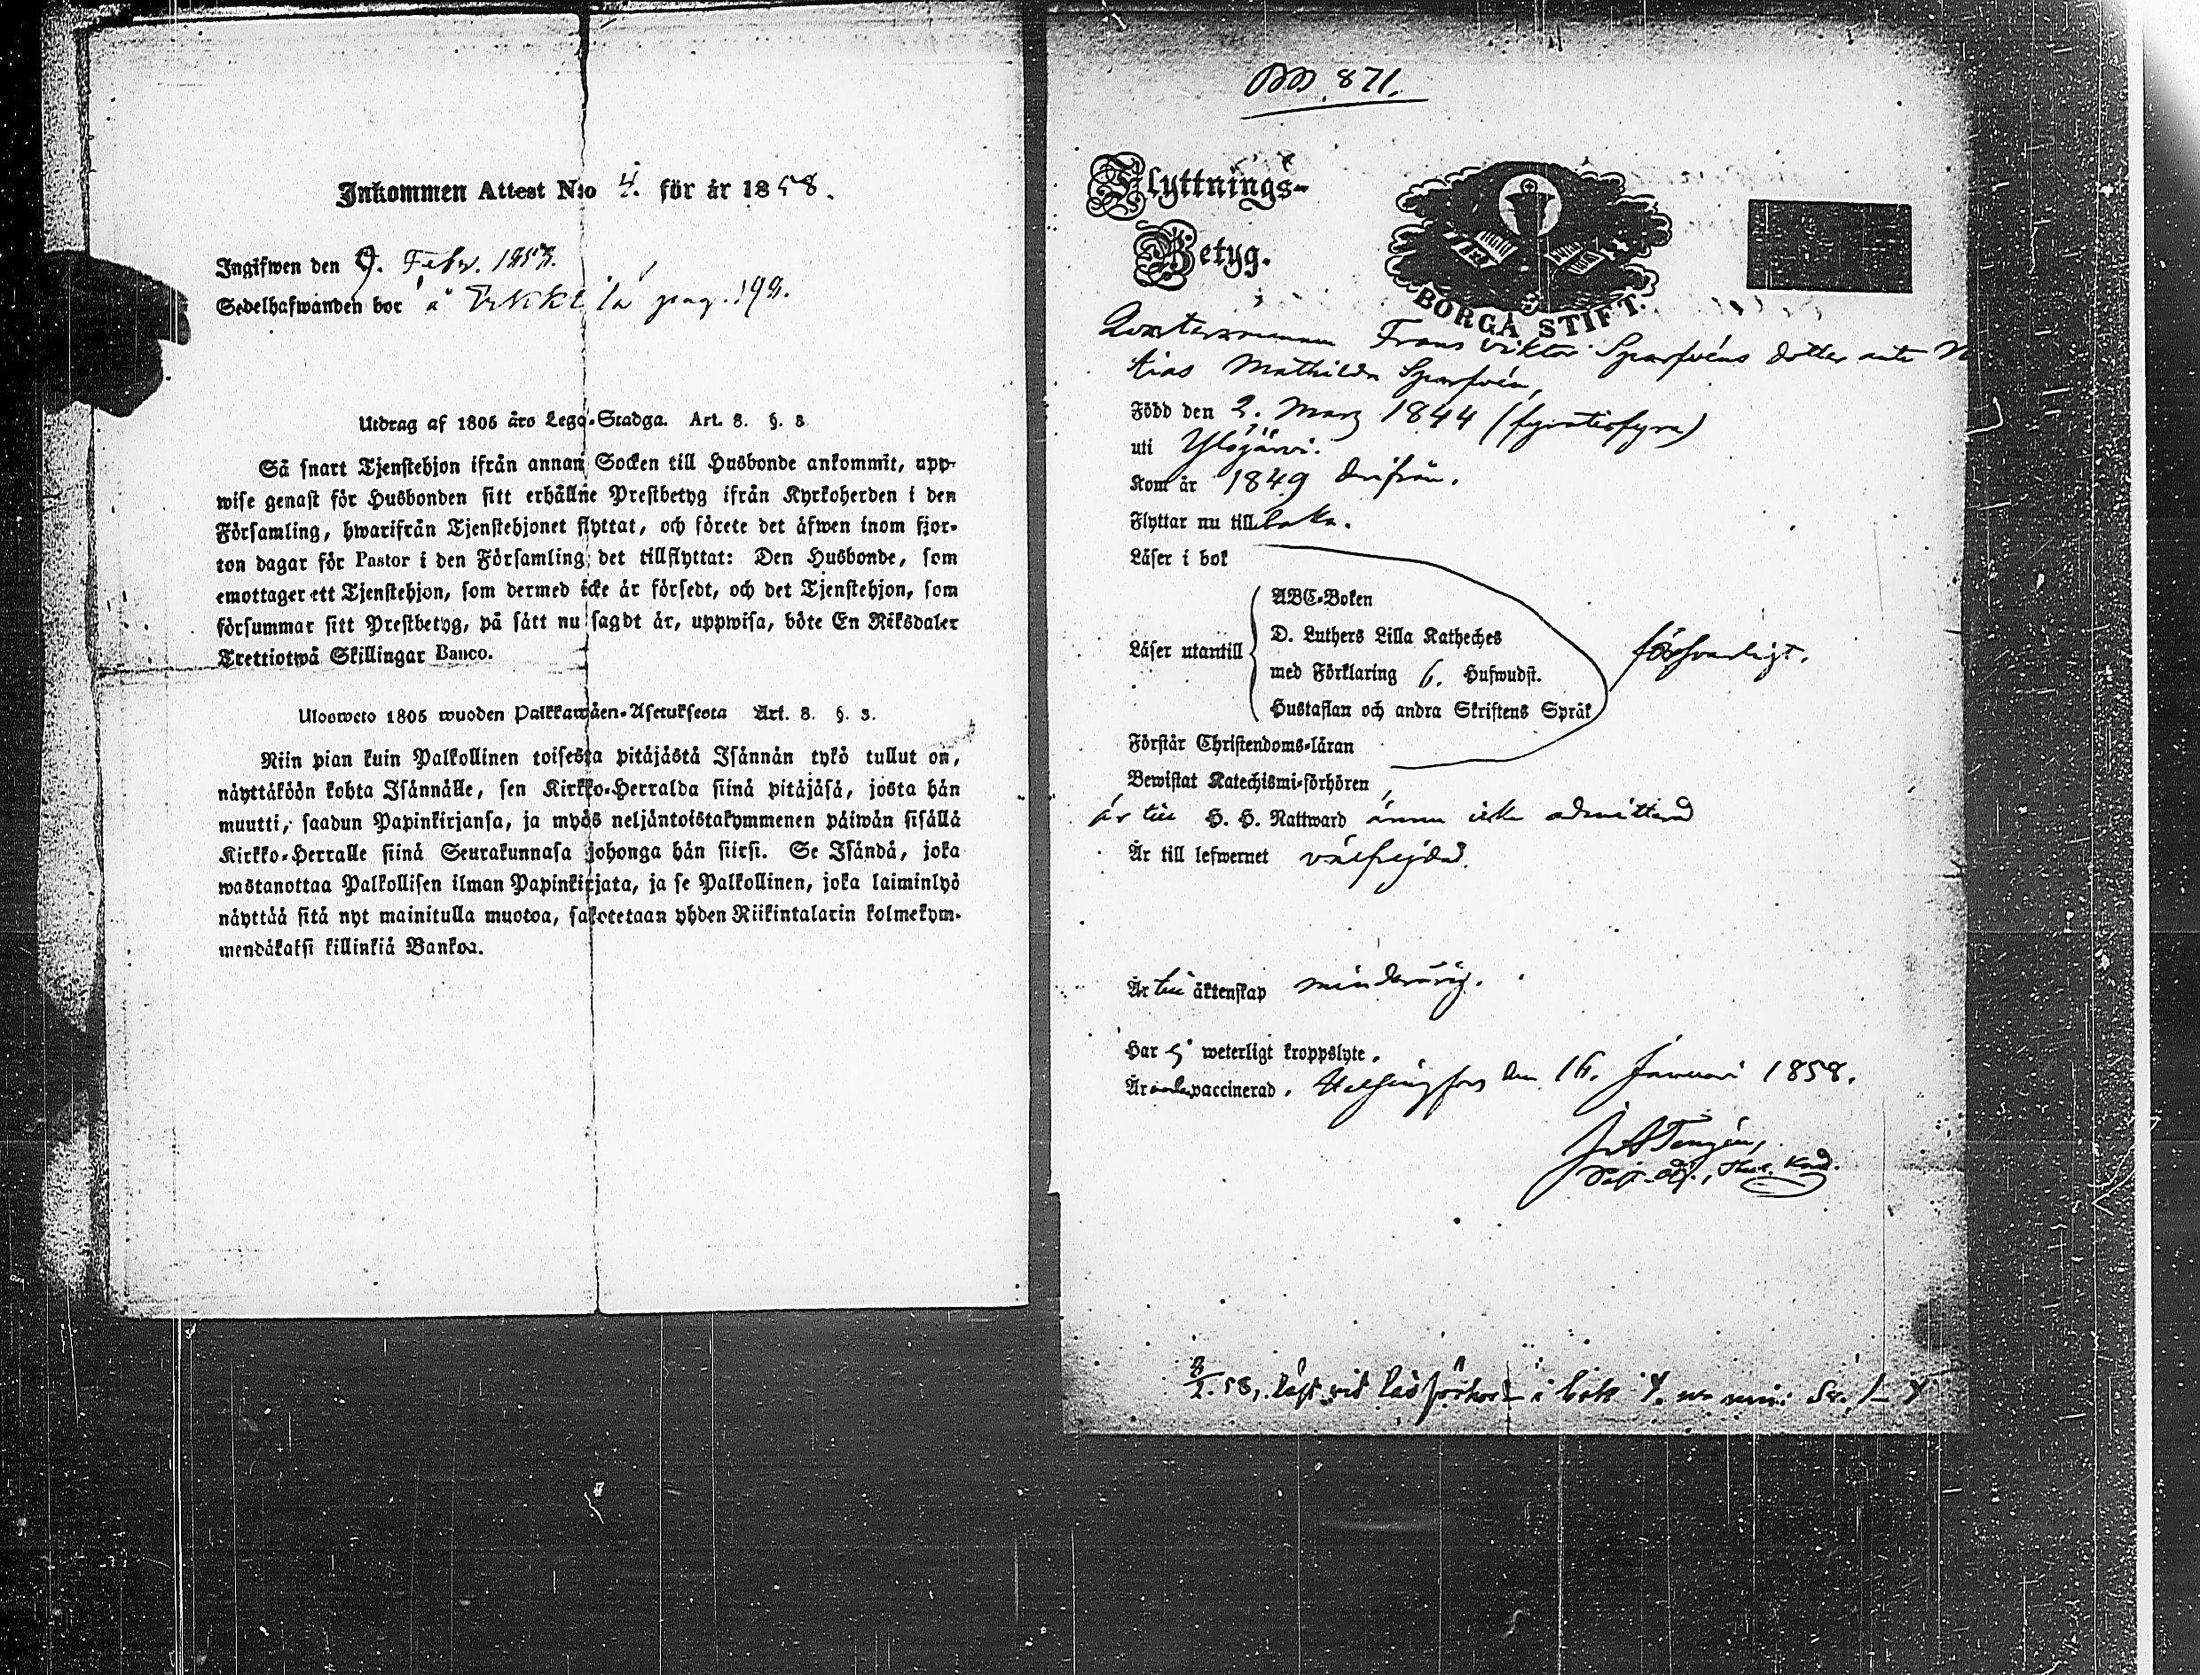 Inkommen Attest N:o 4. för år 1858.
Ingifwen den 9. Febr. 1858.
Sedelhafwanden bor å pag. 198.
Utdrag af 1805 års Lego-Stadga. Art. 8. §. 3
Så snart Tjenstehjon ifrån annan Socken till Husbonde ankommit, upp-
wise genast för Husbonden sitt erhållne Prestbetyg ifrån Kyrkoherden i den
Församling, hwarifrån Tjenstehjonet flyttat, och förete det äfwen inom fjor-
ton dagar för Pastor i den Församling det tillflyttat: Den Husbonde, som
emottager ett Tjenstehjon, som dermed icke är försedt, och det Tjenstehjon, som
försummar sitt Prestbetyg, på sätt nu sagdt är, uppwisa, böte En Riksdaler
Trettiotwå Skillingar Banco.
Ulosweto 1805 wuoden Palkkawäen-Asetuksesta Art. 8. §. 3.
Niin pian kuin Palkollinen toisesta pitäjästä Isännän tykö tullut on,
näyttäköön kohta Isännälle, sen Kirkko-Herralda siinä pitäjäsä, josta hän
muutti, saadun Papinkirjansa, ja myös neljäntoistakymmenen päiwän sisällä
Kirkko-Herralle siinä Seurakunnasa johonga hän siirsi. Se Isändä, joka
wastanottaa Palkollisen ilman Papinkirjata, ja se Palkollinen, joka laiminlyö
näyttää sitä nyt mainitulla muotoa, sakotetaan yhden Riikintalarin kolmekym-
mendäkaksi killinkiä Bankoa.
871.
Flyttnings-
Betyg.
BORGÅ STIFT.
Frans Viktor Sparfvéns dotter
Mathilda Sparfvén,
Född den 2. Mars 1844 (fyratiofyra)
uti Ylöjärvi.
Kom år 1849 derifrån.
Flyttar nu tillbaka.
Läser i bok
ABC-Boken
D. Luthers Lilla Katheches
Läser utantill
med Förklaring 6. Hufwudst.
försvarligt.
Hustaflan och andra Skriftens Språk
Förstår Christendoms-läran
Bewistat Katechismi-förhören
är till H. H. Nattward ännu icke admitterad
Är till lefwernet välfrejdad.
Är till äktenskap minderårig.
Har ej weterligt kroppslyte.
Är vaccinerad. Helsingfors den 16. Januari 1858.
58, läst vid läsförhör i bok